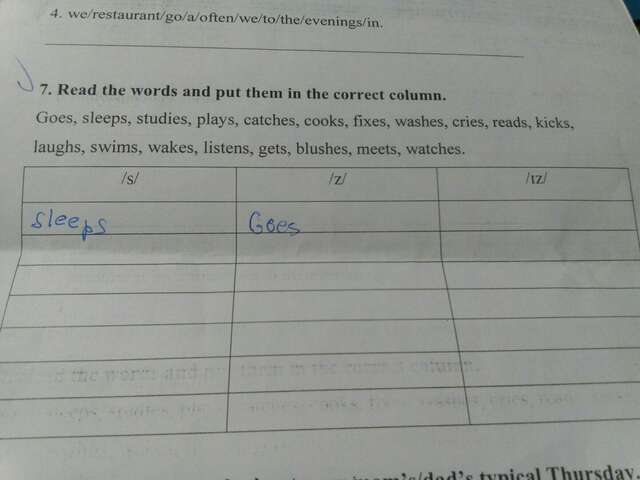 4. we/restaurant/go/a/often/we/to/the/evenings/in.
7. Read the words and put them in the correct column.
Goes, sleeps, studies, plays, catches, cooks, fixes, washes, cries, reads, kicks,
laughs, swims, wakes, listens, gets, blushes, meets, watches.
/s/ /z/ /ɪz/
sleeps Goes
typical Thursday.